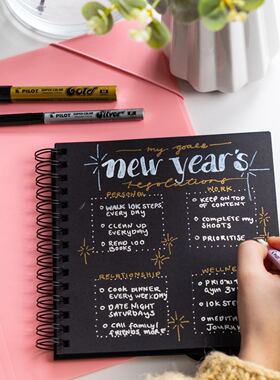 PILOT SUPER COLOR Gold
PILOT SUPER COLOR Silver
my goals
new year's
resolutions
PERSONAL
WALK 10K STEPS,
EVERY DAY
CLEAN UP
EVERYDAY
READ 100
BOOKS
WORK
KEEP ON TOP
OF CONTENT
COMPLETE my
SHOOTS
PRIORITISE
RELATIONSHIP
COOK DINNER
EVERY WEEKDAY
DATE NIGHT
SATURDAYS
CALL FAMILY/
FRIENDS MORE
WELLNE
PRIORIT
GYM 3
10K STEP
MEDIT
JOURN